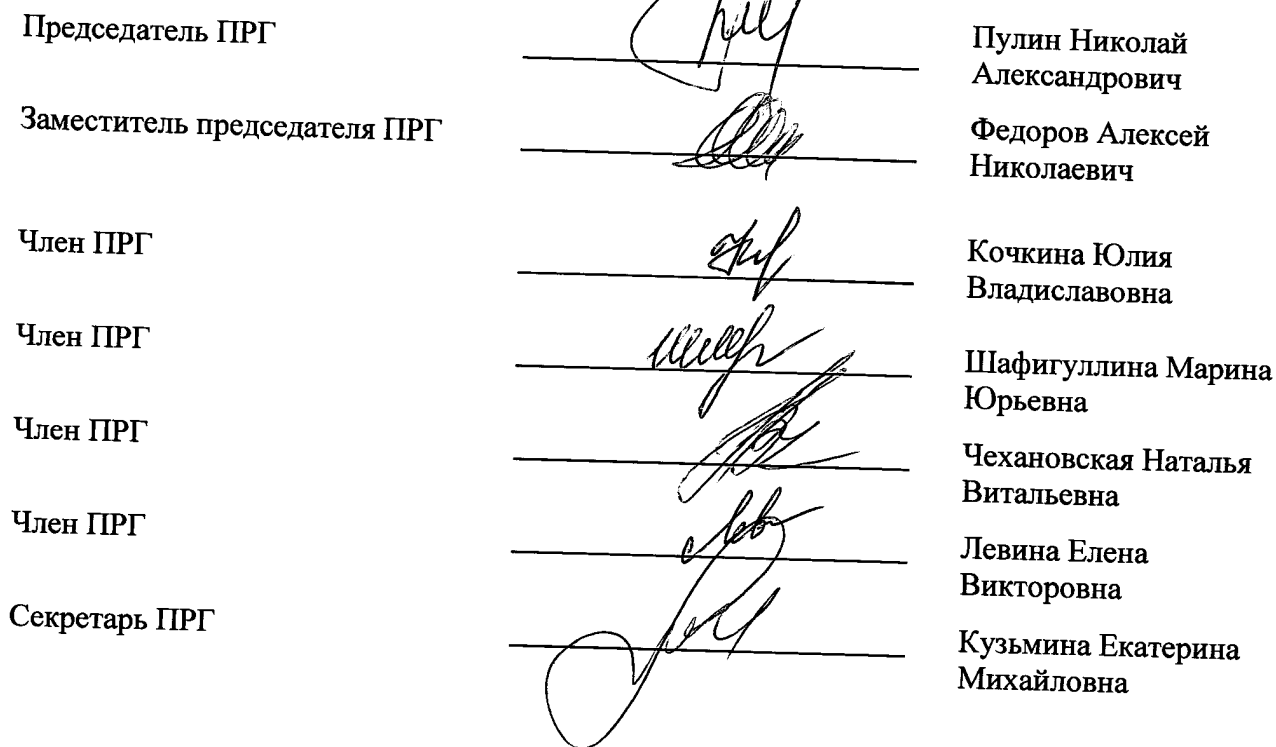 Председатель ПРГ
Пулин Николай
Александрович
Заместитель председателя ПРГ
Федоров Алексей
Николаевич
Член ПРГ
Кочкина Юлия
Владиславовна
Член ПРГ
Шафигуллина Марина
Юрьевна
Член ПРГ
Чехановская Наталья
Витальевна
Член ПРГ
Левина Елена
Викторовна
Секретарь ПРГ
Кузьмина Екатерина
Михайловна